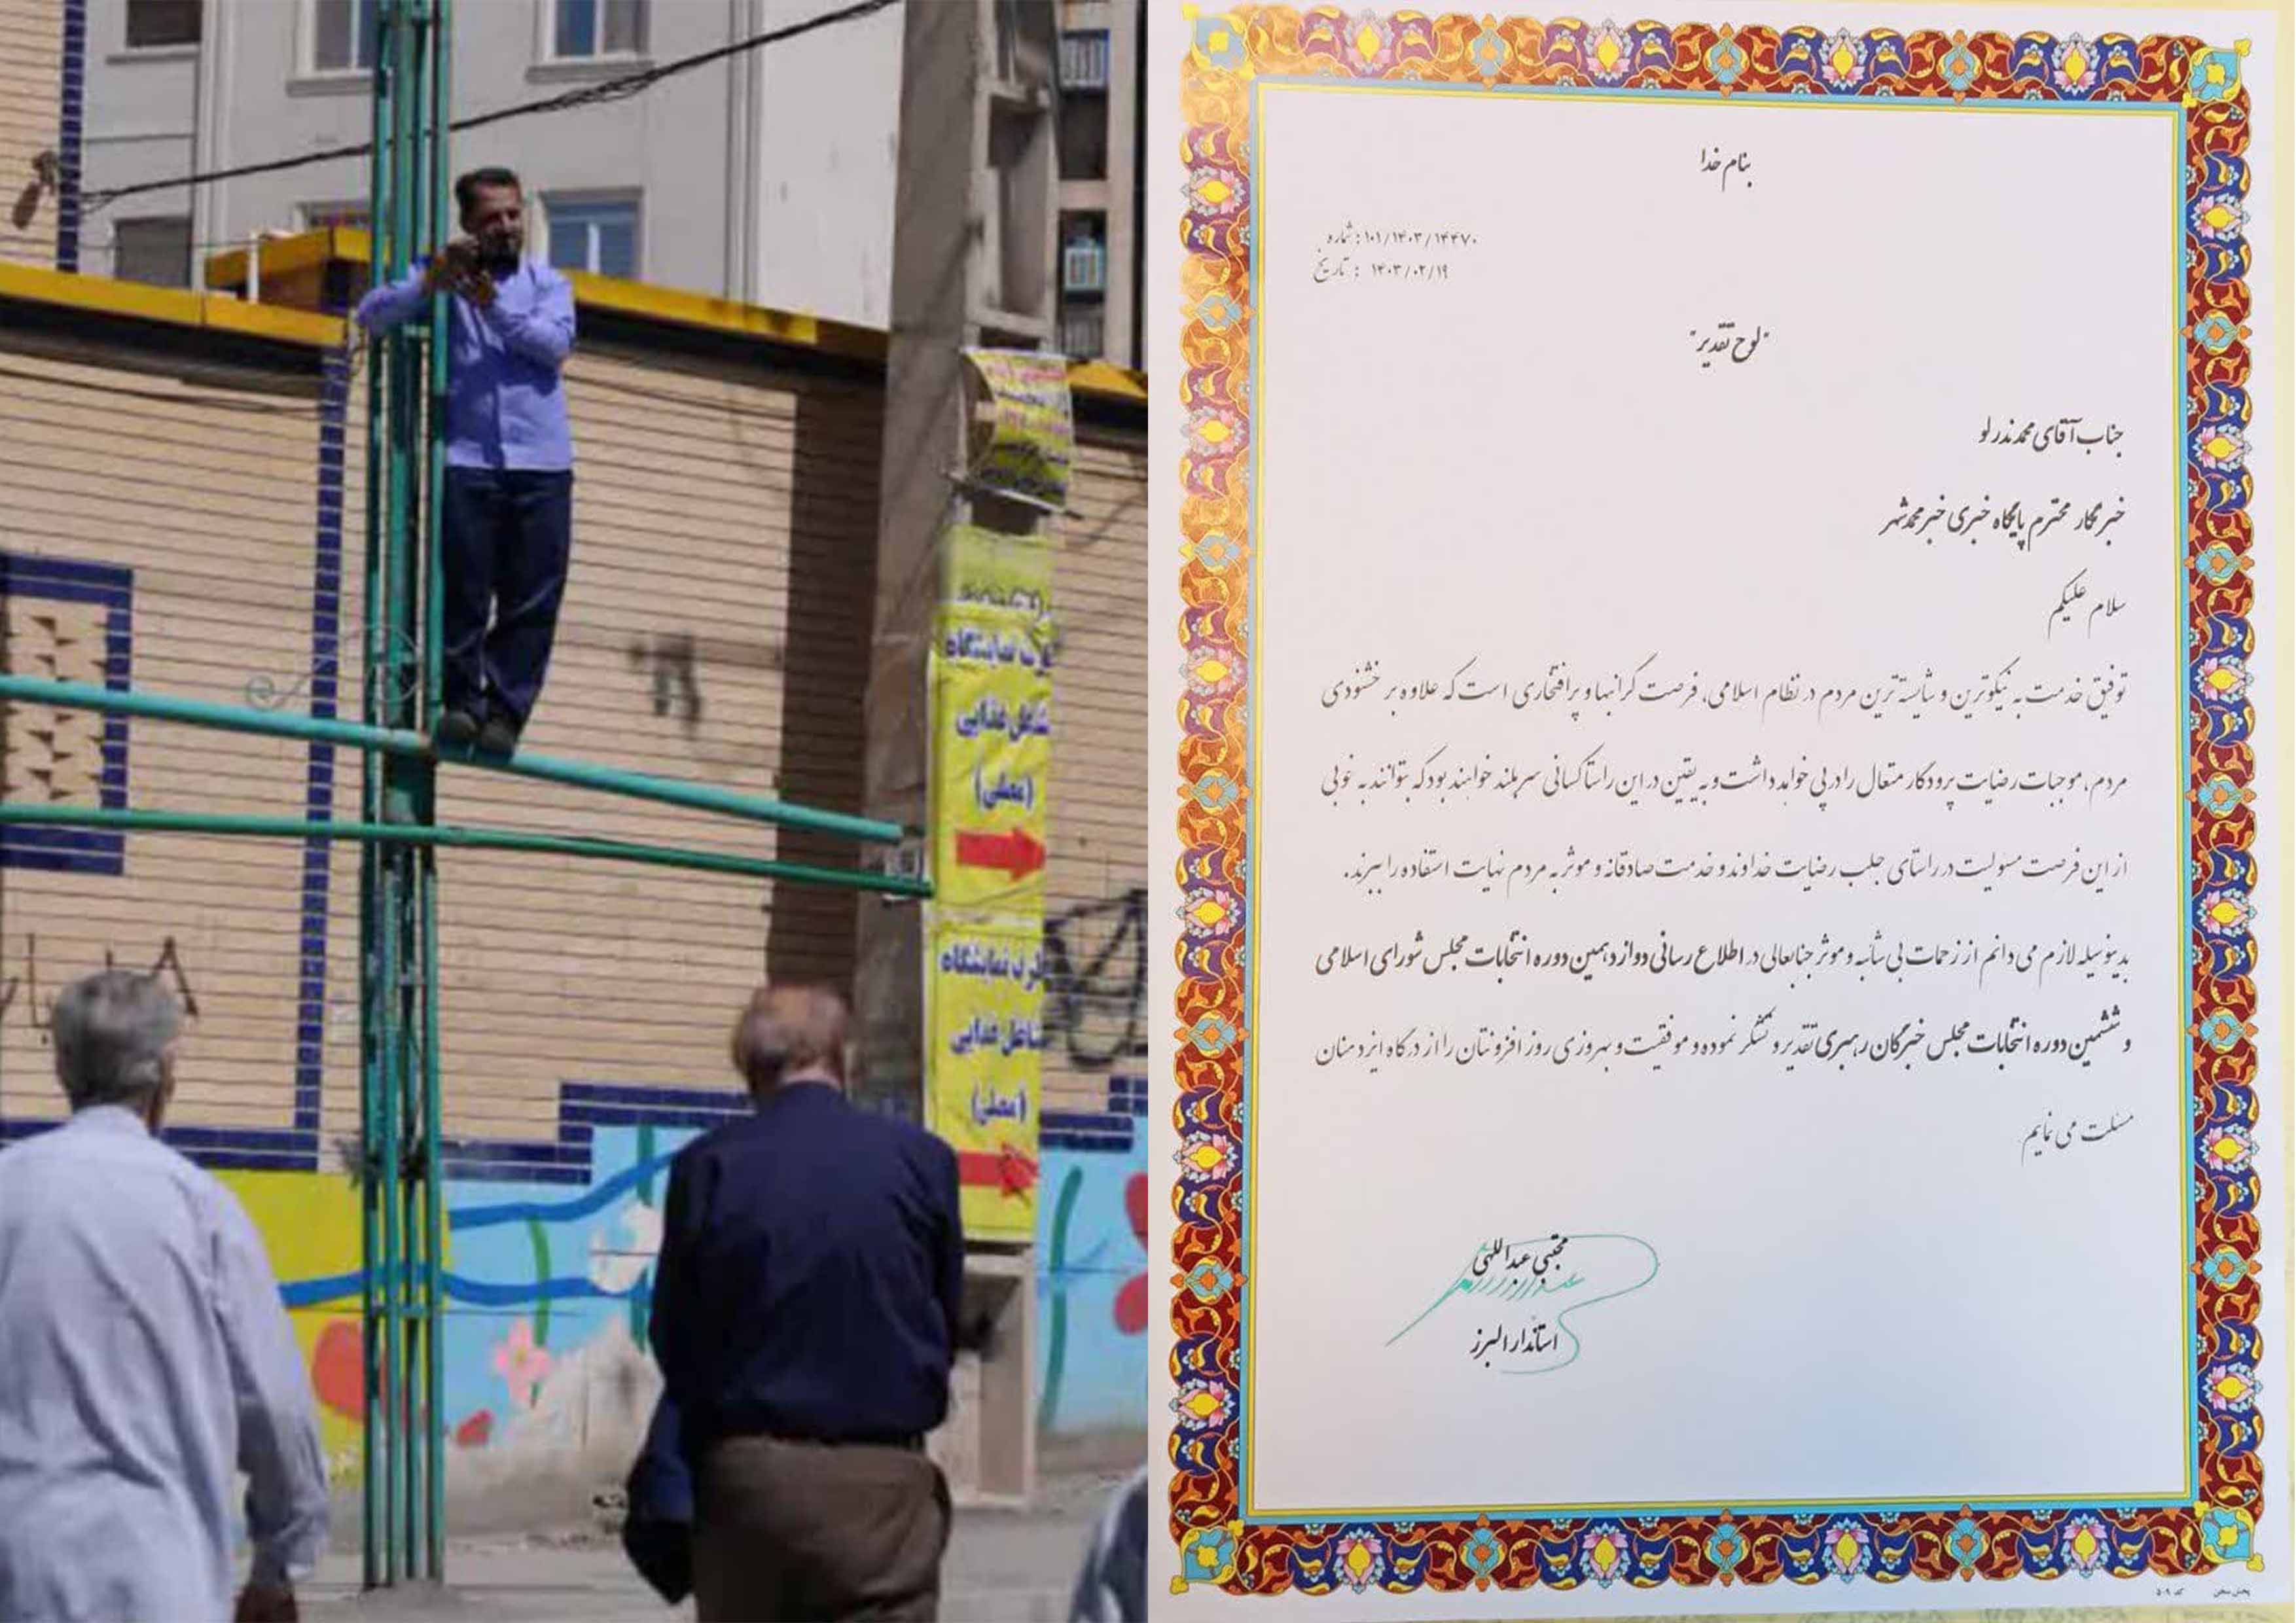 نمایشگاه
مشاغل غذایی
(عملی)
نمایشگاه
مشاغل غذایی
(عملی)
بنام خدا
شماره : ۱۰۱/۱۴۰۳/۱۴۴۷۰
تاریخ : ۱۴۰۳/۰۲/۱۹
"لوح تقدیر"
جناب آقای محمد نذرلو
خبرنگار محترم پایگاه خبری خبر محمدشهر
سلام علیکم
توفیق خدمت به نیکوترین و شایسته ترین مردم در نظام اسلامی، فرصت گرانبها و پرافتخاری است که علاوه بر خشنودی
مردم، موجبات رضایت پرودگار متعال را در پی خواهد داشت و به یقین در این راستا کسانی سربلند خواهند بود که بتوانند به خوبی
از این فرصت مسولیت در راستای جلب رضایت خداوند و خدمت صادقانه و موثر به مردم نهایت استفاده را ببرند.
بدینوسیله لازم می دانم از زحمات بی شائبه و موثر جنابعالی در اطلاع رسانی دوازدهمین دوره انتخابات مجلس شورای اسلامی
و ششمین دوره انتخابات مجلس خبرگان رهبری تقدیر و تشکر نموده و موفقیت و بهروزی روز افزونتان را از درگاه ایزد منان
مسئلت می نمایم
مجتبی عبداللهی
استاندار البرز
پخش سخن کد ۵۰۹